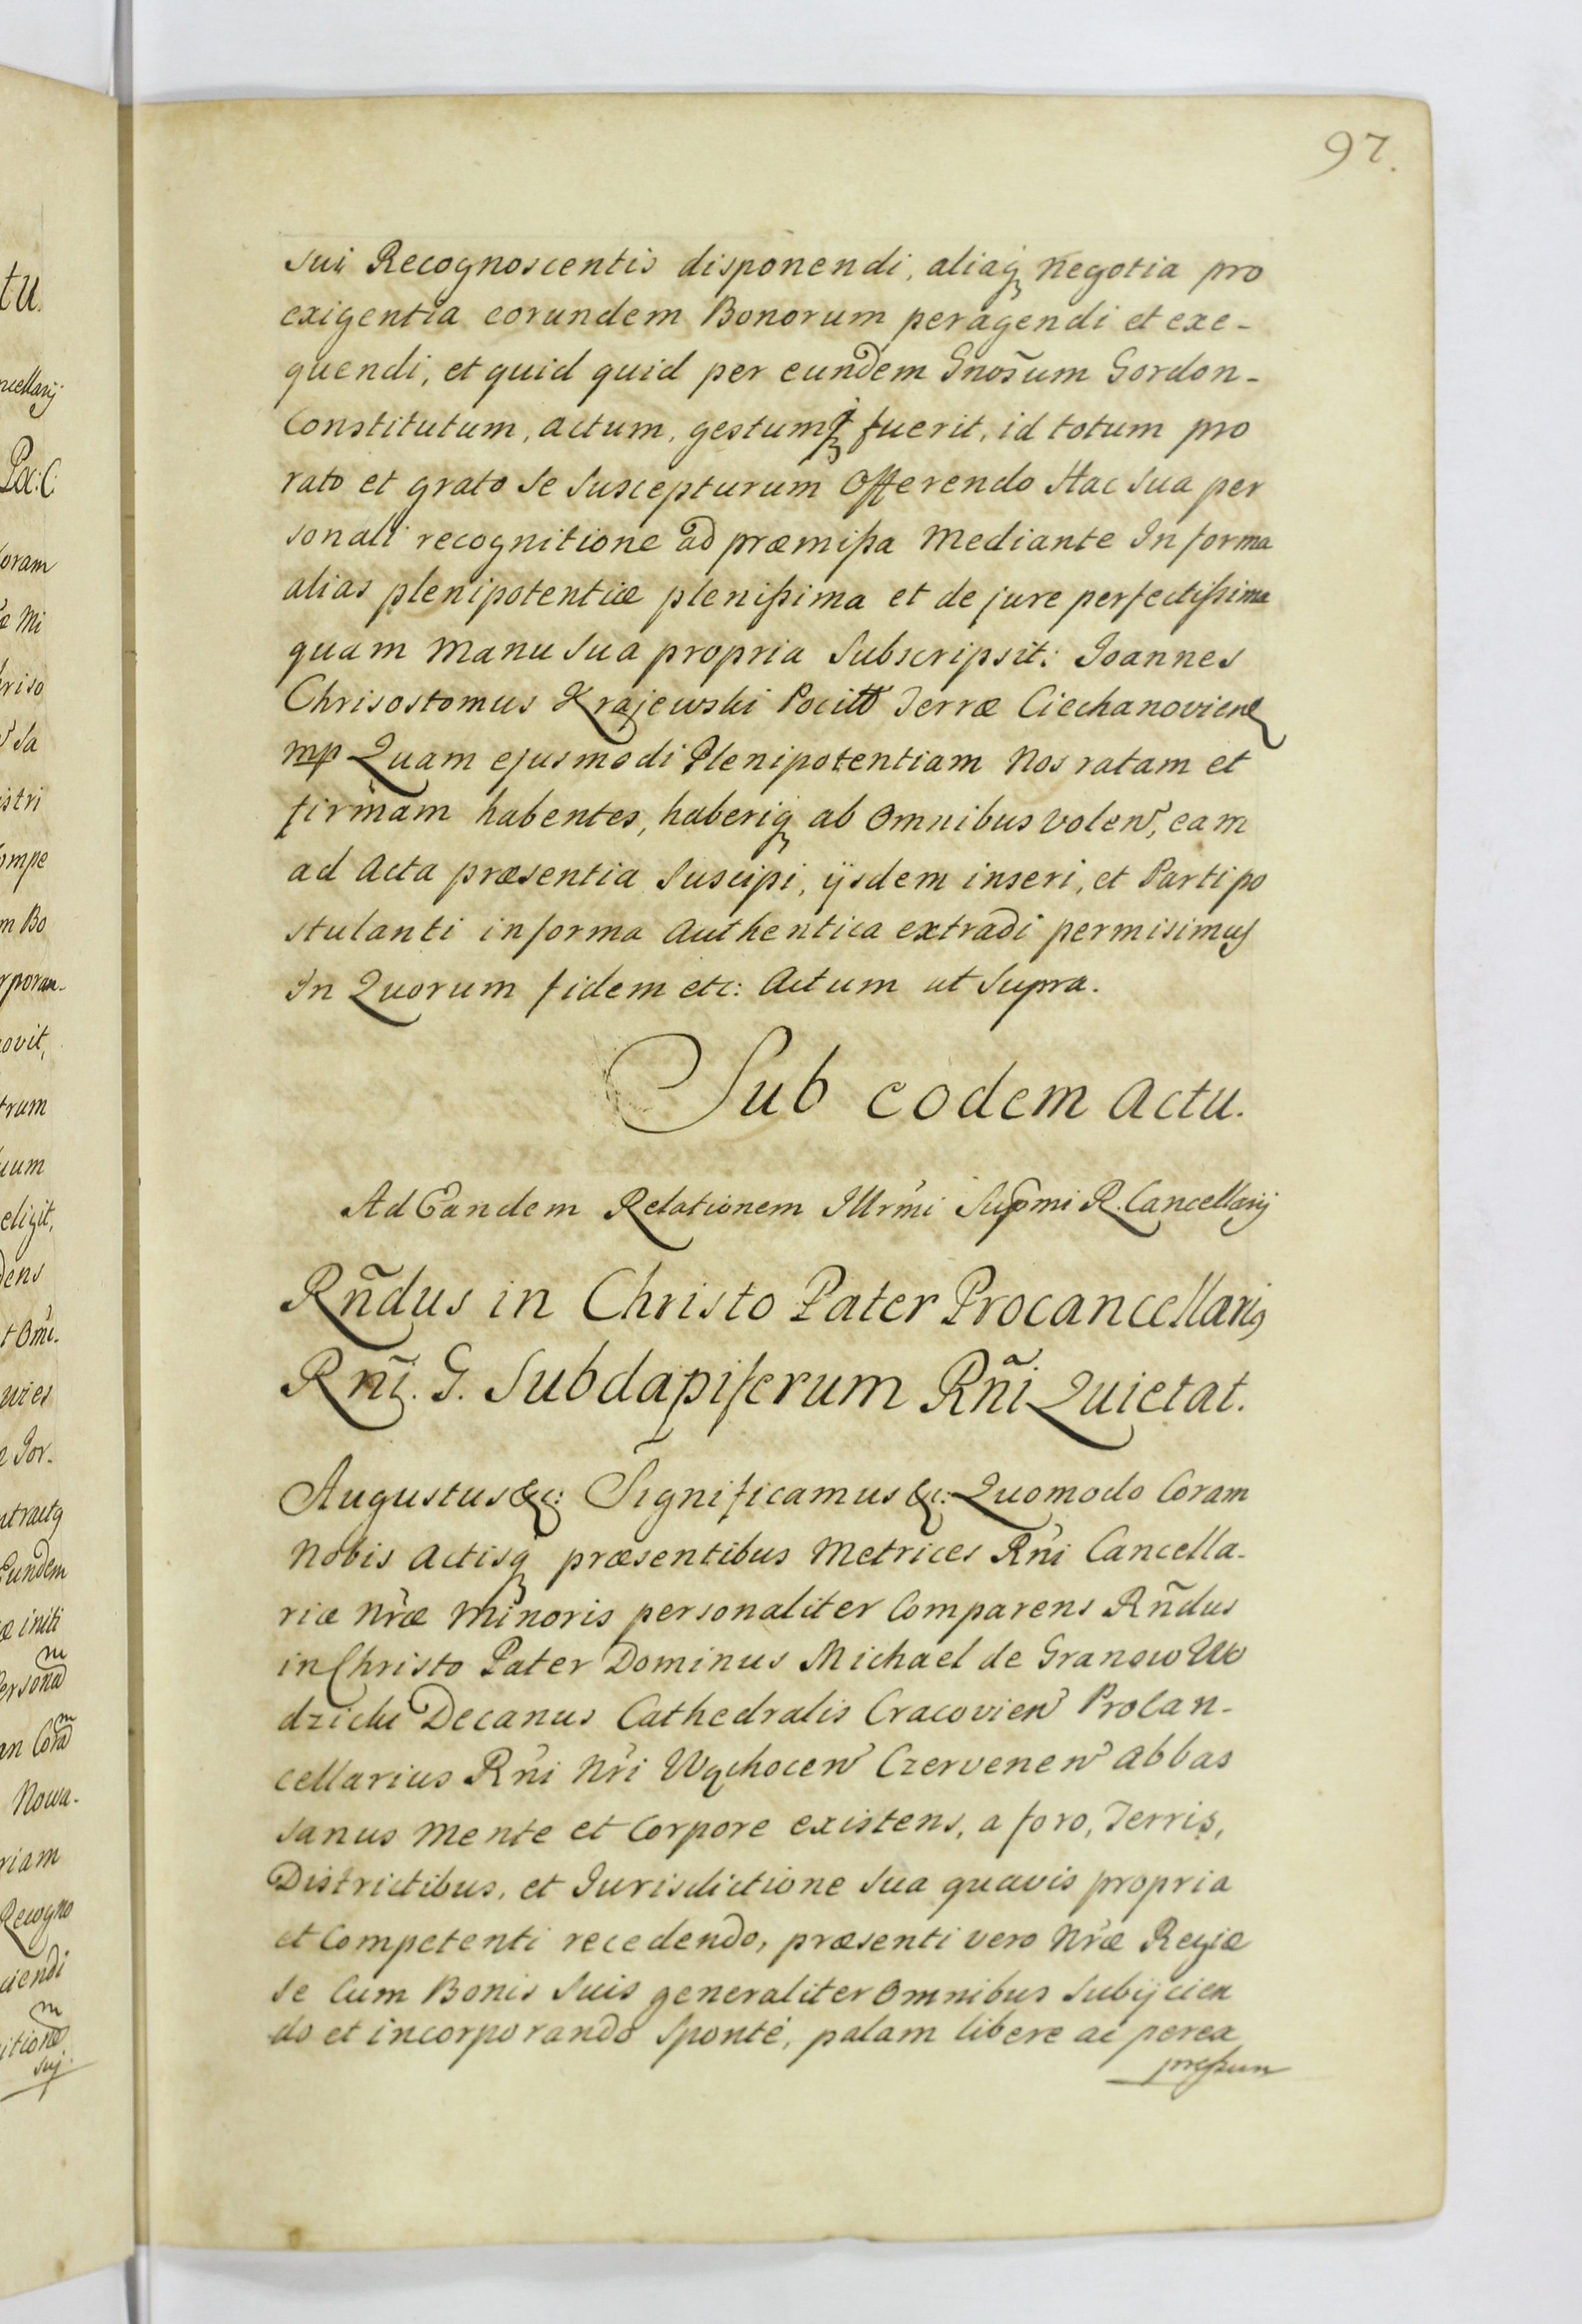 97.
sui Recognoscentis disponendi, aliaq; Negotia pro
exigentia eorundem Bonorum peragendi et exe-
quendi, et quid quid per eundem Gnosũm Gordon-
Constitutum, actum, gestumq; fuerit, id totum pro
rato et grato se suscepturum Offerendo Hac sua per
sonali recognitione ad præmißa Mediante In forma
alias plenipotentiæ plenißima et de jure perfectißima
quam Manu sua propria Subscripsit: Joannes
Chrisostomus Krajewski Terræ Ciechanovien̄
mp Quam ejusmodi Plenipotentiam Nos ratam et
firmam habentes, haberiq; ab Omnibus volen̄, eam
ad Acta præsentia Suscipi, ijsdem inseri, et Parti po
stulanti in forma Authentica extradi permisimus
In Quorum fidem etc: Actum ut Supra.
Sub eodem Actu.
Ad Eandem Relationem Illrm̃i Supm̃i R. Cancellarij
Rñdus in Christo Pater Procancellarig
Rñi. G. Subdapiferum Rñi Quietat.
Augustus &c: Significamus &c: Quomodo Coram
Nobis Actisq; præsentibus Metrices Rñi Cancella-
riæ Nr̃æ Minoris personaliter Comparens Rñdus
in Christo Pater Dominus Michael de Granow Wo
dzicki Decanus Cathedralis Cracovien̄ ProCan-
cellarius Rñi Nr̃i Wąchocen̄ Czervenen̄ Abbas
sanus Mente et Corpore existens, a foro, Terris,
Districtibus, et Jurisdictione sua quavis propria
et Competenti recedendo, præsenti vero Nr̃æ Regiæ
se Cum Bonis Suis generaliter Omnibus Subijcien
do et incorporando Sponte, palam libere ac per ea
preßum
tu.
ncellarij
Pol: C:
oram
Mi
riso
Sa
istri
ompe
m Bo
rporan-
ovit,
trum
uum
eligit,
dens
t Om̃i-
uies
Gor-
ntractg
Eundem
æ initi
Persona
an Cora
Nowa-
riam
Recogno
ciendi
itione
suj